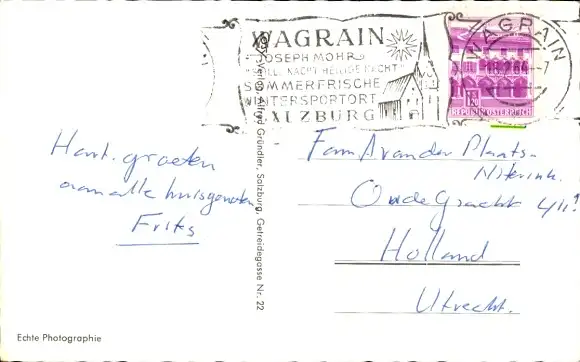 WAGRAIN
JOSEPH MOHR
"STILLE NACHT HEILIGE NACHT"
SOMMERFRISCHE
WINTERSPORTORT
SALZBURG
WAGRAIN
64
1.20
REPUBLIK ÖSTERREICH
Hart. groeten
aan alle huisgenoten
Frits
Verlag Alfred Gründler, Salzburg, Getreidegasse Nr. 22
Fam. A van der Plaats-
Oude Gracht
Holland
Utrecht.
Echte Photographie